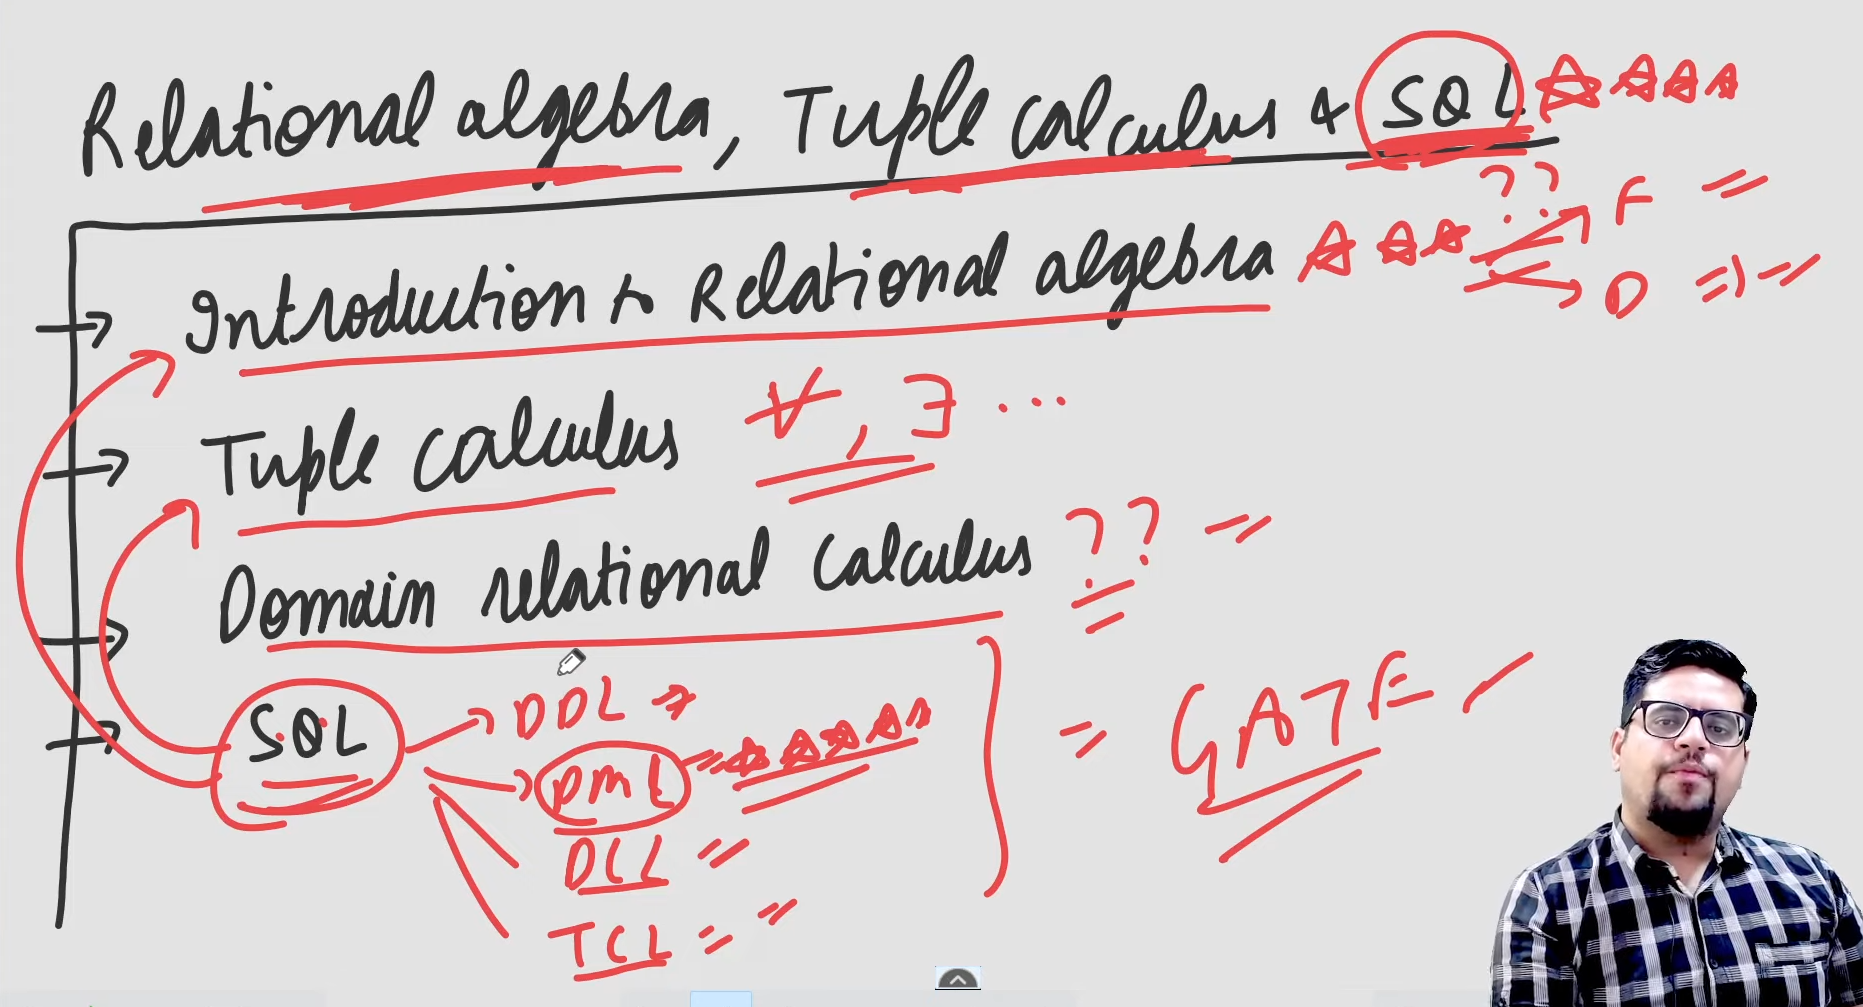 Relational algebra, Tuple calculus & SQL
?? F
Introduction to Relational algebra D
Tuple calculus ∀, ∃ ...
Domain relational calculus ??
SQL DDL
DML
DCL
TCL
GATE